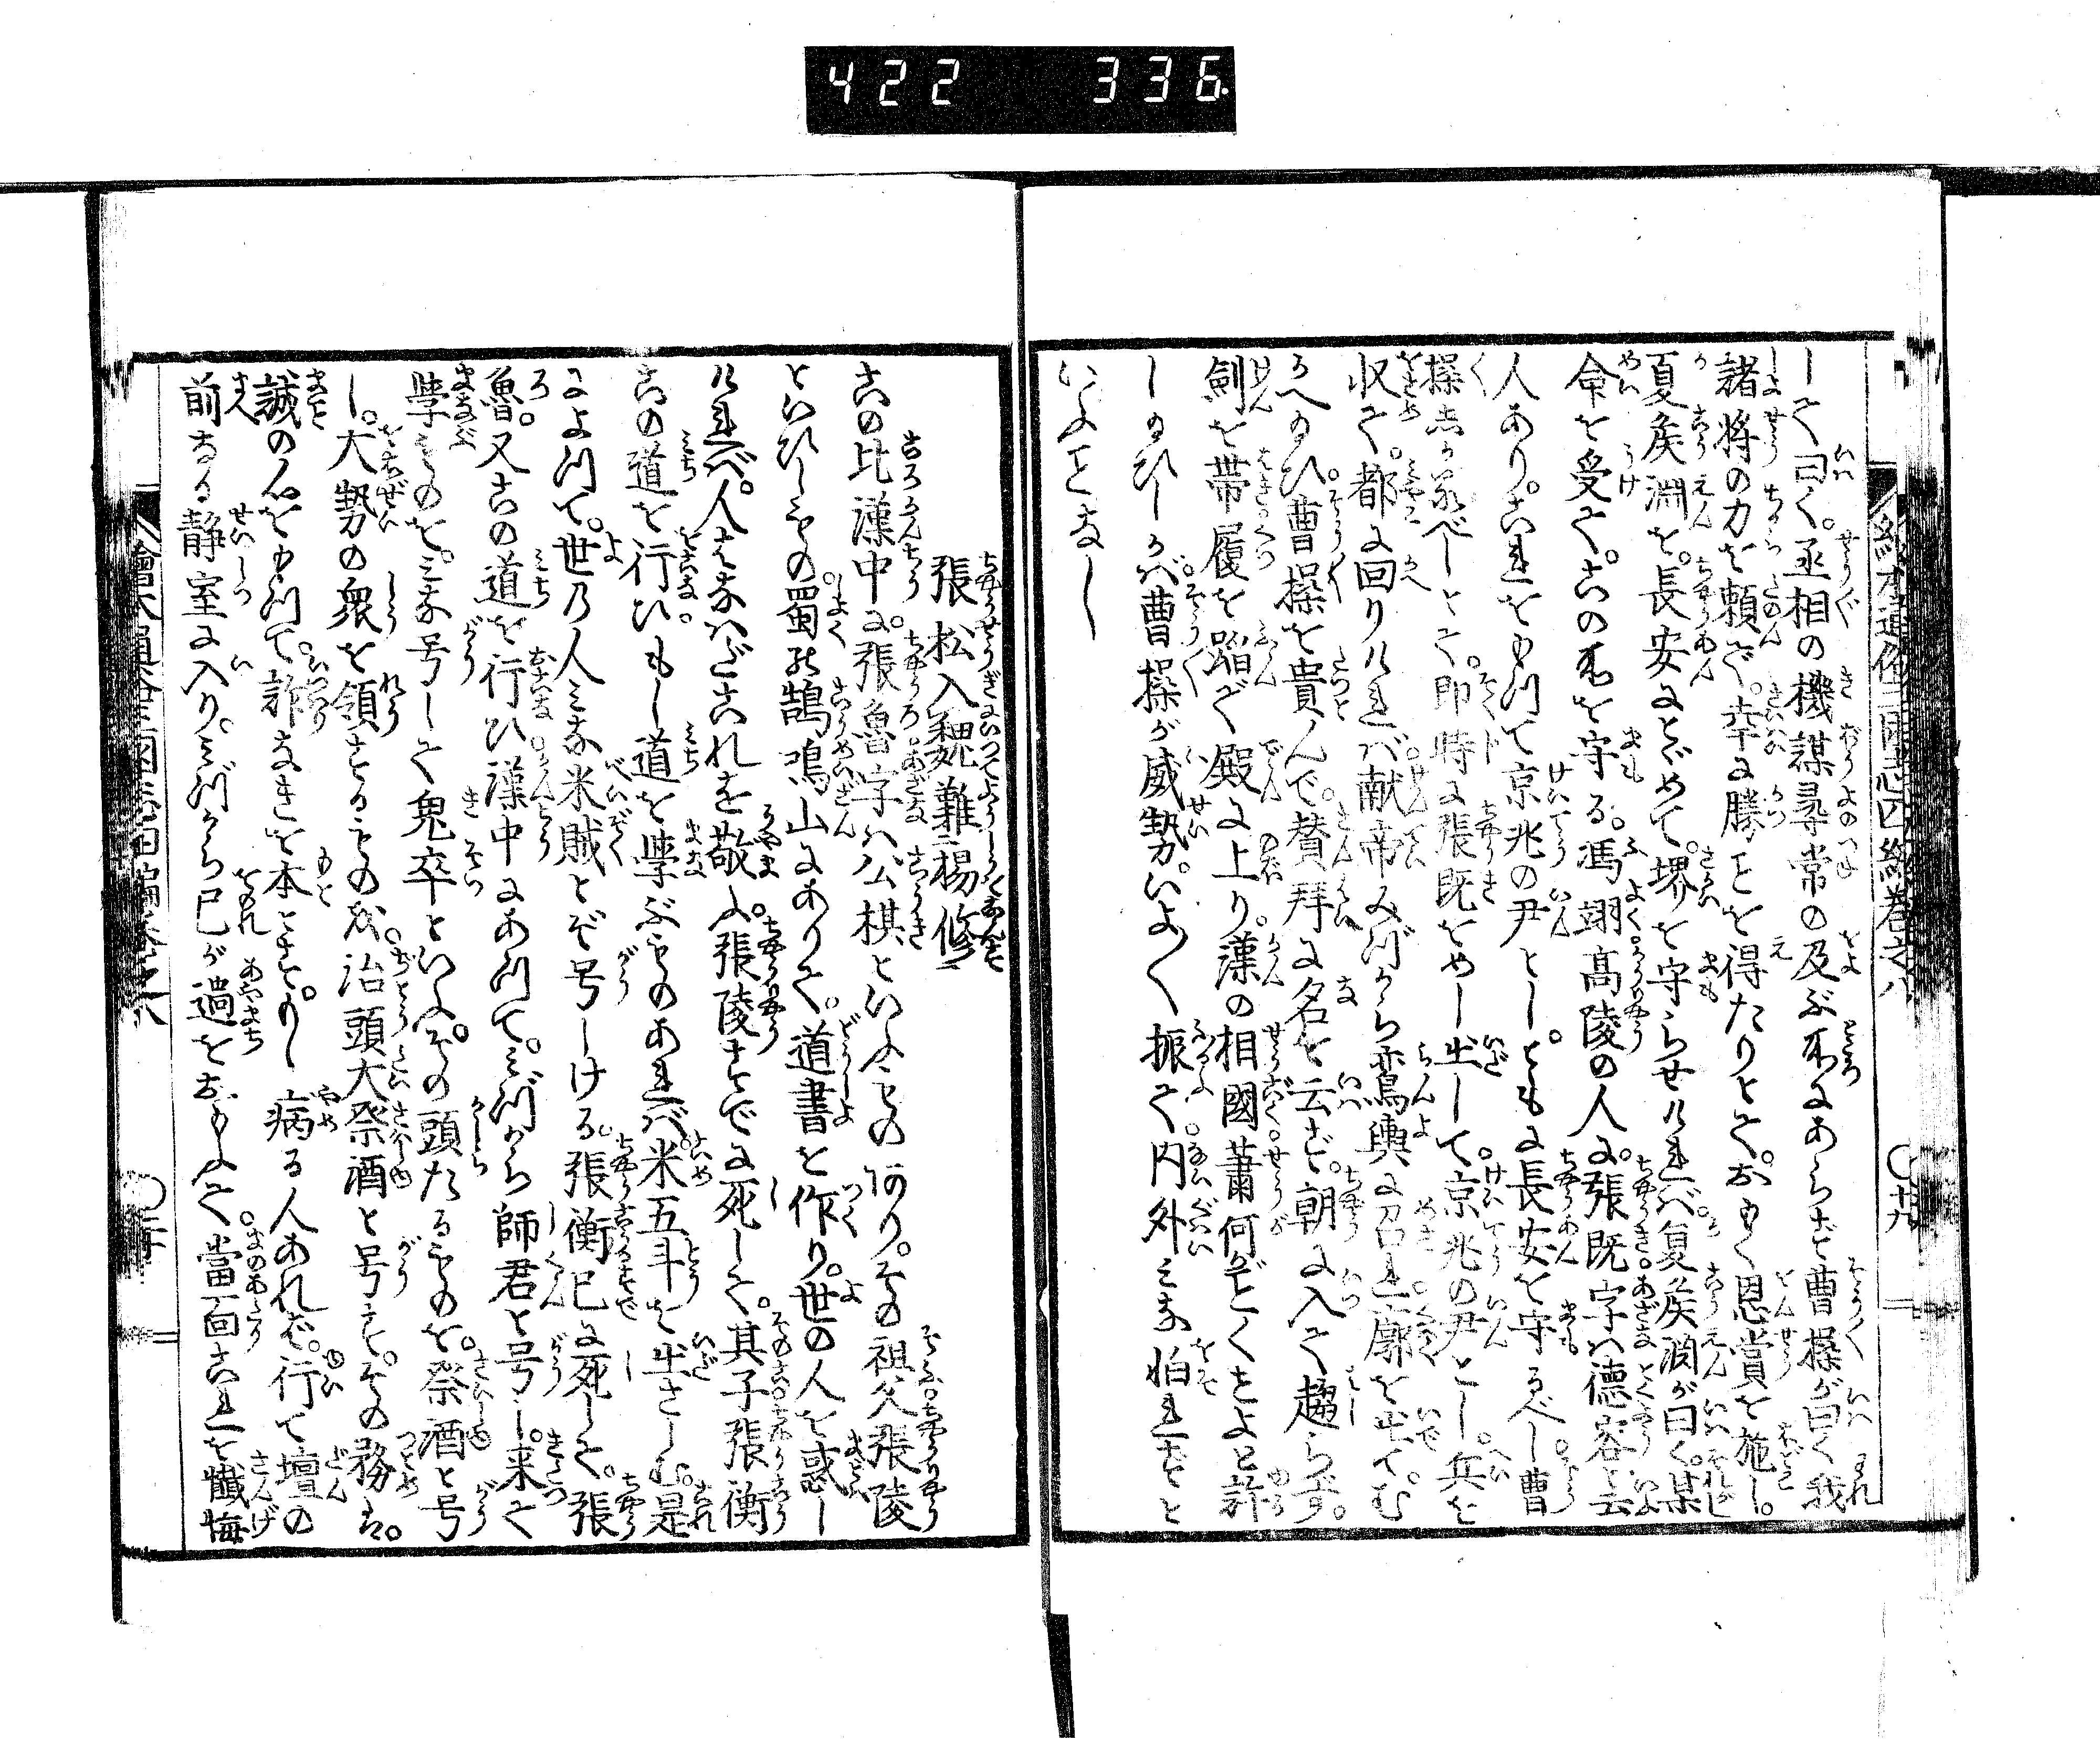 422 336
して曰く。丞相の機謀尋常の及ぶ所にあらず曹操が曰く我
諸将の力を頼で。幸に勝ことを得たりとて。おもく恩賞を施し。
夏侯淵を。長安にとゞめて。堺を守らせければ。夏侯淵が曰く。某
命を受て。この所を守る。馮翊高陵の人に。張既字は徳容と云
人あり。これをもつて京兆の尹とし。ともに長安を守るべし曹
操しかるべしとて。即時に張既をめし出して。京兆の尹とし。兵を
収て。都に回りければ献帝みづから鸞輿に召れ廓を出てむ
かへ給ひ曹操を貴んで。賛拝に名を云ず。朝に入て趨らず。
劍を帯履を蹈で殿に上り。漢の相國蕭何がごとくせよと詔
し給ひしかば曹操が威勢。いよ〱振て内外みな怕れずと
いふことなし
張松入魏難楊修
この比漢中に。張魯字は公棋といふもの有り。その祖父張陵
といひしもの蜀の鵠鳴山にありて。道書を作り。世の人を惑し
ければ。人みなはなはだこれを敬ふ。張陵すでに死して。其子張衡
この道を行ひもし道を學ぶものあれば米五斗を出さしむ。是
によつて。世の人みな米賊とぞ号しける。張衡已に死して。張
魯。又この道を行ひ漢中にあつて。みづから師君と号し。来て
學ものを。みな号して鬼卒といふ。その頭たるものを。祭酒と号
し。大勢の衆を領するものを。治頭大祭酒と号す。その務は。
誠の心をもつて。詐なきを本とす。もし病る人あれば。行て壇の
前なる静室に入り。みづから己が過をおもふて當面これを懺悔
繪本通俗三國志四編巻之八
〇十九
繪本通俗三國志四編巻之八
〇二十